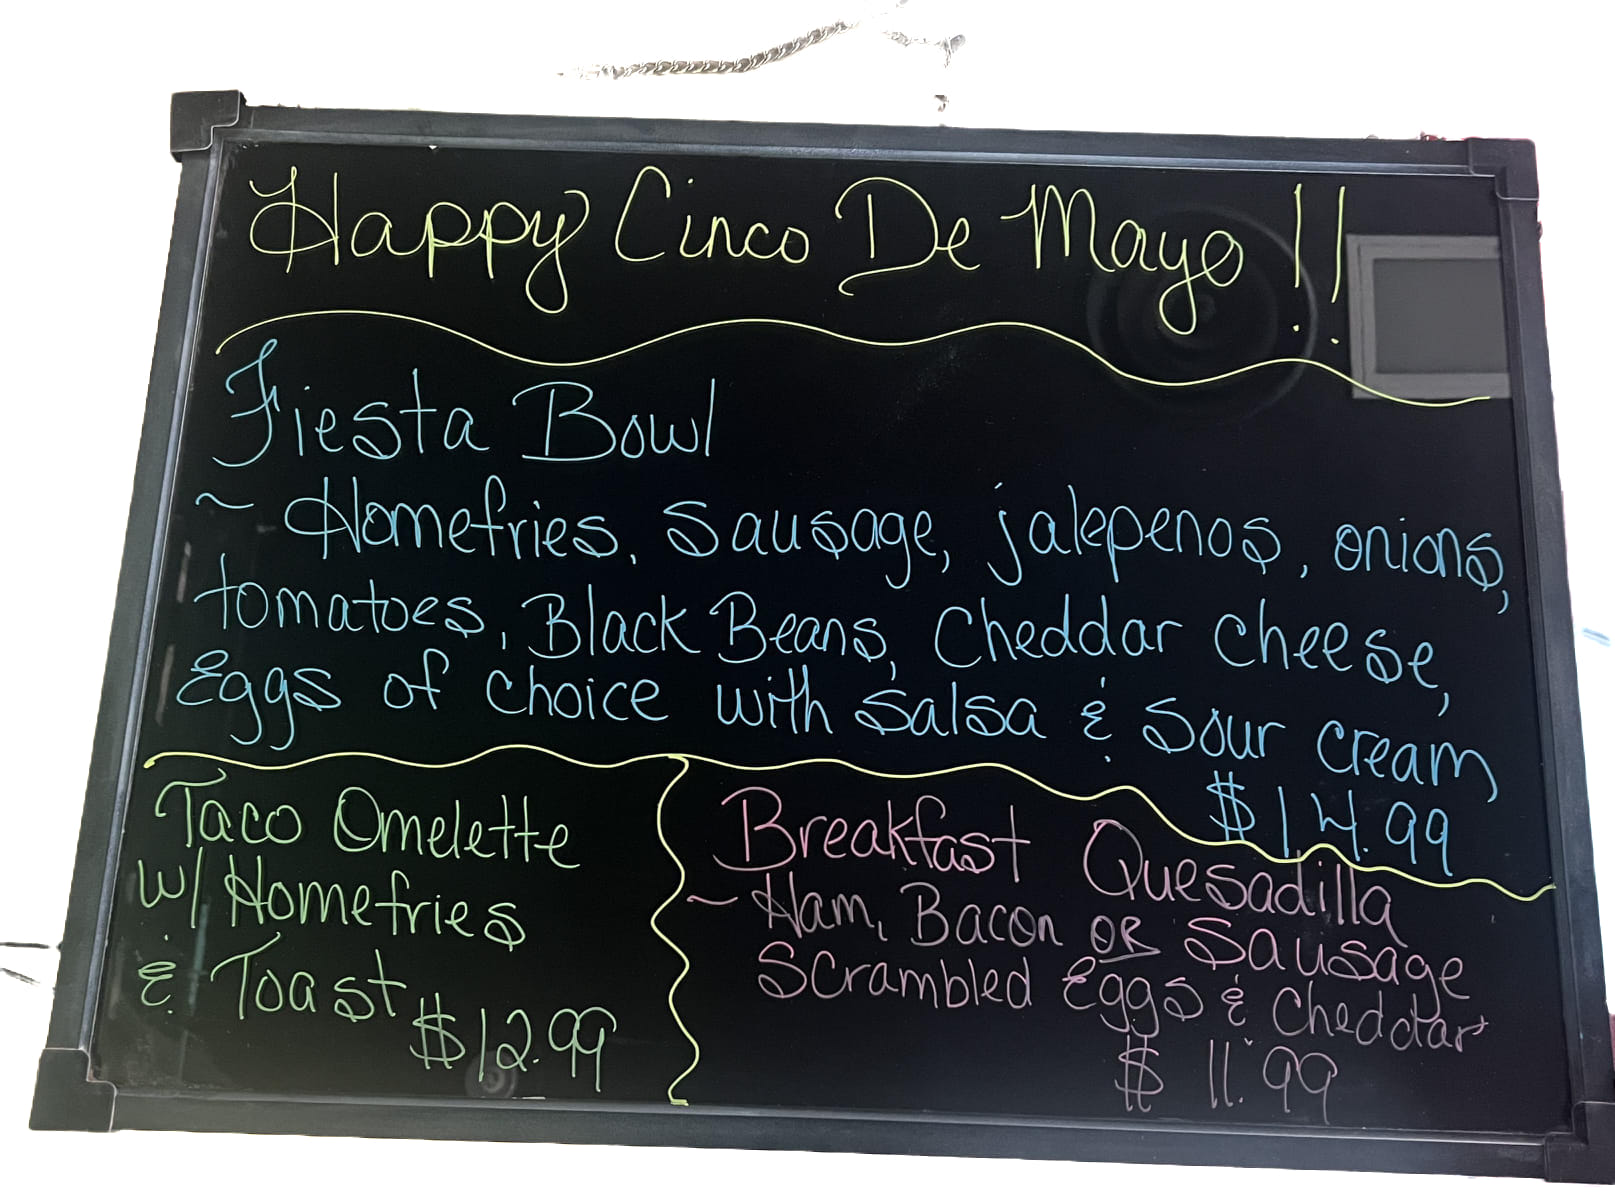 Happy Cinco De Mayo!!
Fiesta Bowl
~ Homefries, Sausage, jalepenos, onions,
tomatoes, Black Beans, Cheddar cheese,
Eggs of choice with Salsa & Sour cream
$14.99
Taco Omelette
w/ Homefries
& Toast
$12.99
Breakfast Quesadilla
~ Ham, Bacon OR Sausage
Scrambled Eggs & Cheddar
$11.99